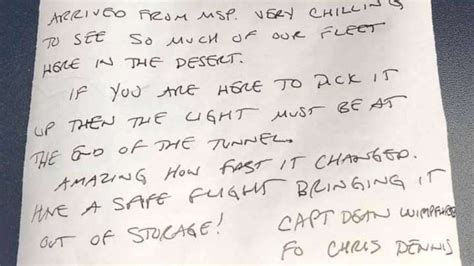 ARRIVED FROM MSP. VERY CHILLING
TO SEE SO MUCH OF OUR FLEET
HERE IN THE DESERT.
IF YOU ARE HERE TO PICK IT
UP THEN THE LIGHT MUST BE AT
THE END OF THE TUNNEL.
AMAZING HOW FAST IT CHANGED.
HAVE A SAFE FLIGHT BRINGING IT
OUT OF STORAGE! CAPT DEAN
FO CHRIS DENNIS